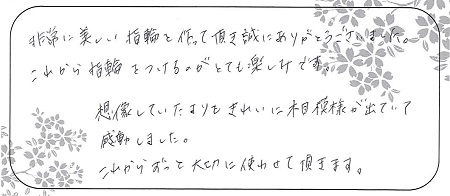 非常に美しい指輪を作って頂き誠にありがとうございました。
これから指輪をつけるのがとても楽しみです。
想像していたよりもきれいに木目模様が出ていて
感動しました。
これからずっと大切に使わせて頂きます。